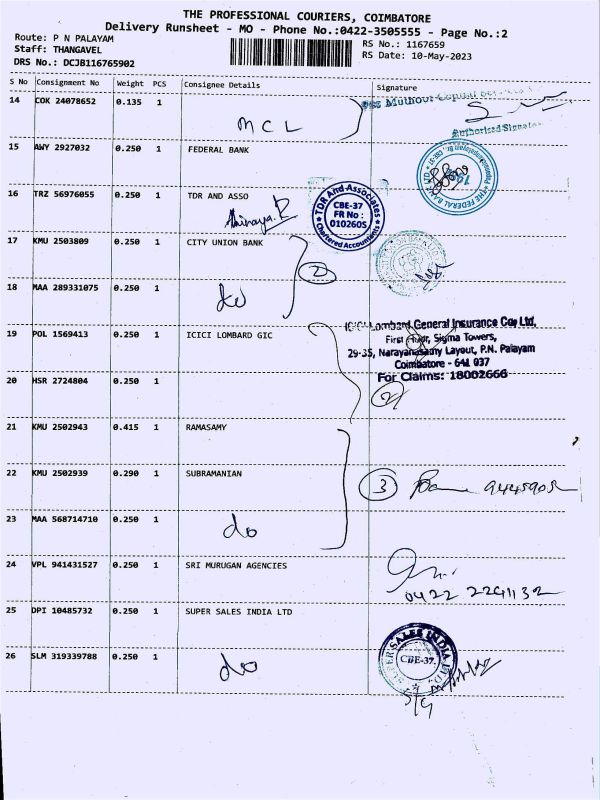 THE PROFESSIONAL COURIERS, COIMBATORE
Delivery Runsheet - MO - Phone No.:0422-3505555 - Page No.:2
Route: P N PALAYAM
Staff: THANGAVEL
DRS No.: DCJB116765902
RS No.: 1167659
RS Date: 10-May-2023
S No Consignment No Weight PCS Consignee Details Signature
14 COK 24078652 0.135 1 MCL
Authorised
15 AWY 2927032 0.250 1 FEDERAL BANK
16 TRZ 56976055 0.250 1 TDR AND ASSO
TDR And Associates
CBE-37
FR No :
010260S
Chartered Accountants
17 KMU 2503809 0.250 1 CITY UNION BANK
2
18 MAA 289331075 0.250 1 do
19 POL 1569413 0.250 1 ICICI LOMBARD GIC
ICICI Lombard General Insurance Coy Ltd,
First Floor, Sigma Towers,
29-35, Narayanasamy Layout, P.N. Palayam
Coimbatore - 641 037
For Claims: 18002666
20 HSR 2724804 0.250 1
2
21 KMU 2502943 0.415 1 RAMASAMY
22 KMU 2502939 0.290 1 SUBRAMANIAN
3
23 MAA 568714710 0.250 1 do
24 VPL 941431527 0.250 1 SRI MURUGAN AGENCIES
0422 2241132
25 DPI 10485732 0.250 1 SUPER SALES INDIA LTD
SUPER SALES INDIA LTD
CBE-37.
26 SLM 319339788 0.250 1 do